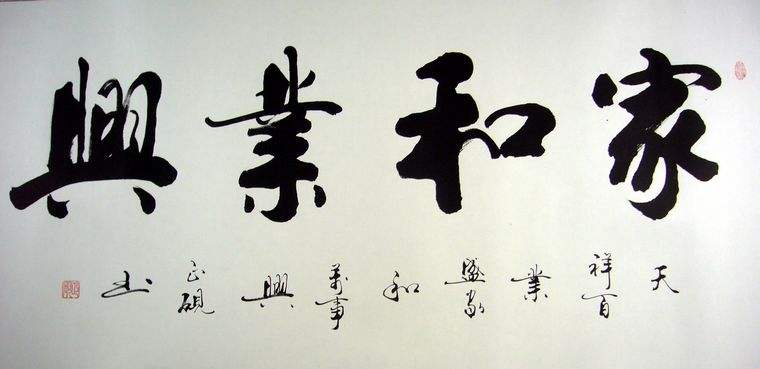 家和業興
天祥百業盛家和萬事興
硯书